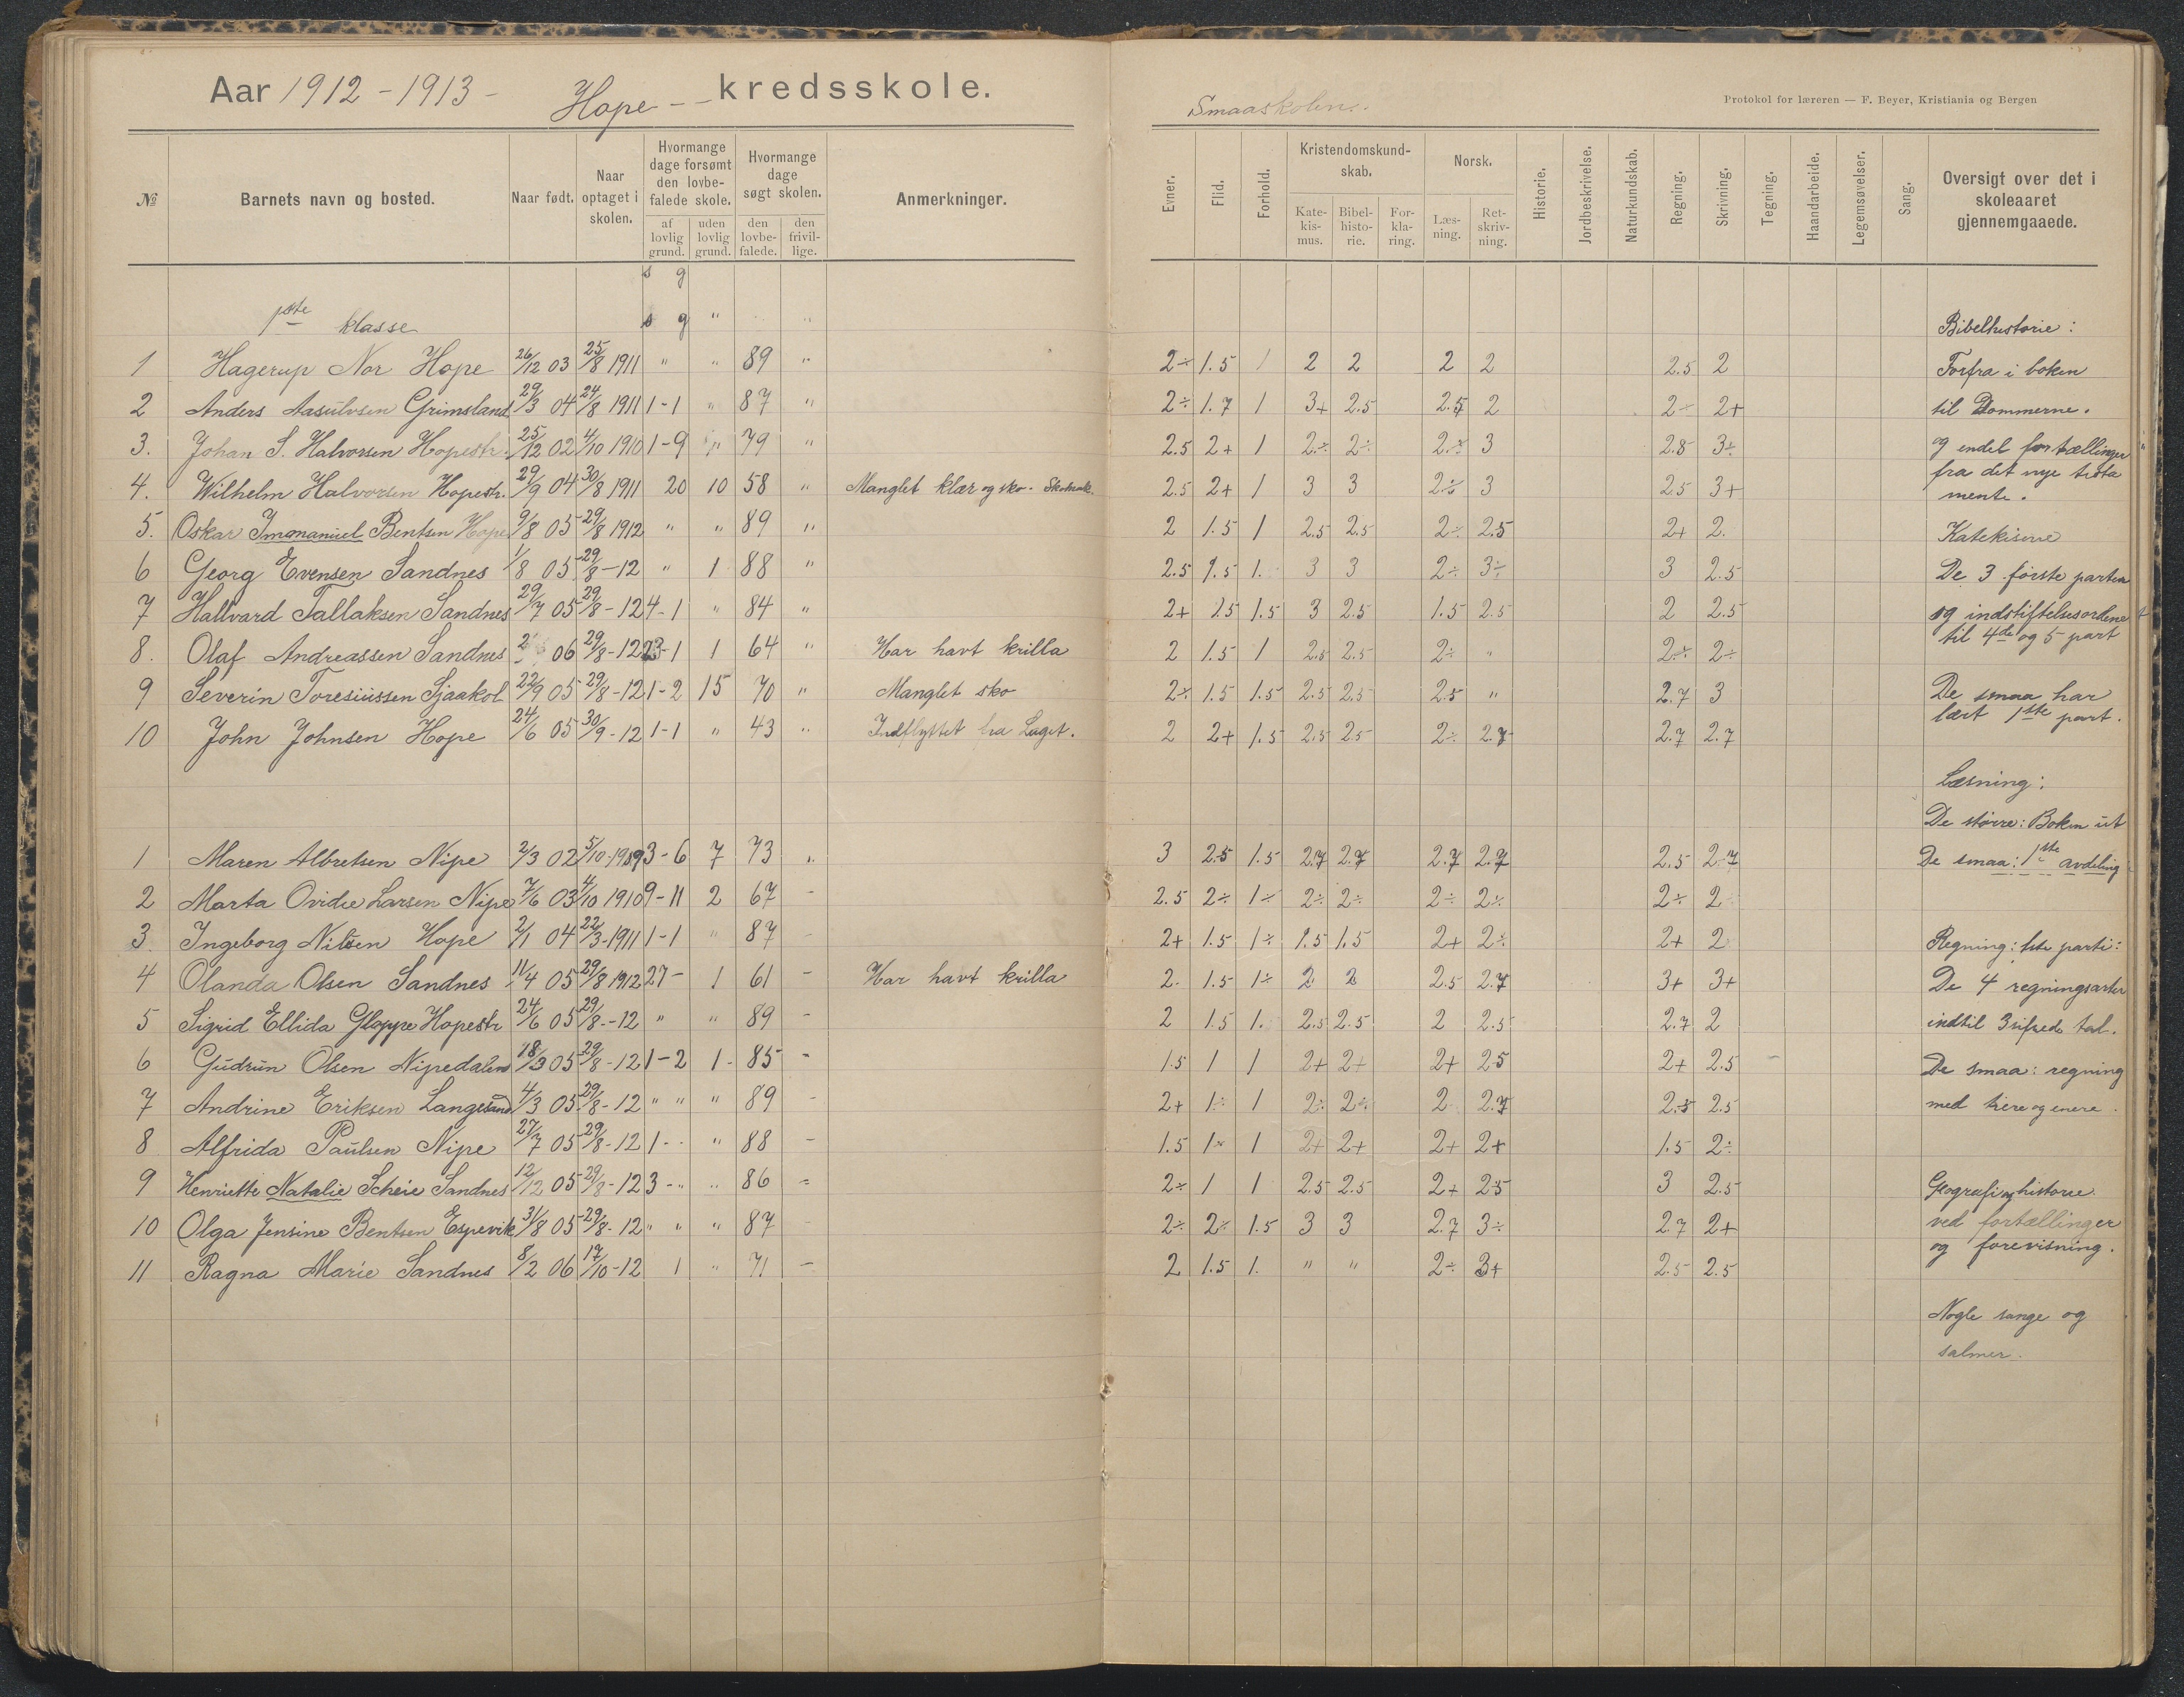 Aar 1912 - 1913 - Hope - - kredsskole.
Smaaskolen.
Protokol for læreren — F. Beyer, Kristiania og Bergen
№ Barnets navn og bosted. Naar født. Naar optaget i skolen. Hvormange dage forsømt den lovbefalede skole. af lovlig grund. uden lovlig grund. Hvormange dage søgt skolen. den lovbefalede. den frivillige. Anmerkninger.
Evner. Flid. Forhold. Kristendomskundskab. Katekismus. Bibelhistorie. Forklaring. Norsk. Læsning. Retskrivning. Historie. Jordbeskrivelse. Naturkundskab. Regning. Skrivning. Tegning. Haandarbeide. Legemsøvelser. Sang. Oversigt over det i skoleaaret gjennemgaaede.
s g
1ste klasse s g " " Bibelhistorie :
1 Hagerup Nor Hope 26/12 03 25/8 1911 " " 89 " 2÷ 1.5 1 2 2 2 2 2.5 2 Forfra i boken
2 Anders Aasulvsen Grimsland 29/3 04 24/8 1911 1-1 " 87 " 2÷ 1.7 1 3+ 2.5 2.5 2 2÷ 2+ til Dommerne.
3. Johan S. Halvorsen Hopestr. 25/12 02 4/10 1910 1-9 " 79 " 2.5 2+ 1 2÷ 2÷ 2÷ 3 2.8 3÷ og endel fortællinger
4. Wilhelm Halvorsen Hopestr. 29/9 04 30/8 1911 20 10 58 " Manglet klær og sko. 2.5 2+ 1 3 3 2÷ 3 2.5 3+ fra det nye testa
mente.
5. Oskar Immanuel Bentsen Hope 9/8 05 29/8 1912 " " 89 " 2 1.5 1 2.5 2.5 2÷ 2.5 2+ 2. Katekisme
6 Georg Evensen Sandnes 1/8 05 29/8 -12 " 1 88 " 2.5 1.5 1. 3 3 2÷ 3÷ 3 2.5 De 3 første parter
7 Hallvard Tallaksen Sandnes 29/7 05 29/8 -12 4-1 " 84 " 2+ 1.5 1.5 3 2.5 1.5 2.5 2 2.5 og indstiftelsesordene
8. Olaf Andreassen Sandnes 06 29/8 -12 23-1 1 64 " Har havt krilla 2 1.5 1 2.5 2.5 2÷ " 2÷ 2÷ til 4de og 5 part
9 Severin Toresiussen Sjaakol 22/9 05 29/8 -12 1-2 15 70 " Manglet sko 2÷ 1.5 1.5 2.5 2.5 2.5 " 2.7 3 De smaa har
10 John Johnsen Hope 24/6 05 30/9 -12 1-1 " 43 " Indflyttet fra Laget. 2 2+ 1.5 2.5 2.5 2÷ 2.7 2.7 2.7 lært 1ste part.
Læsning :
De større: Boken ut
1 Maren Albretsen Nipe 2/3 02 5/10 1909 3-6 7 73 " 3 2.5 1.5 2.7 2.7 2.7 2.7 2.5 2.7 De smaa: 1ste avdeling
2 Marta Ovidie Larsen Nipe 7/6 03 4/10 1910 9-11 2 67 - 2.5 2÷ 1÷ 2÷ 2÷ 2÷ 2÷ 2÷ 2
3. Ingeborg Nilsen Hope 2/1 04 22/3 1911 1-1 " 87 - 2+ 1.5 1÷ 1.5 1.5 2+ 2÷ 2+ 2 Regning: 1ste parti:
4 Olanda Olsen Sandnes 11/4 05 29/8 1912 27- 1 61 - Har havt krilla 2. 1.5 1÷ 2 2 2.5 2.7 3+ 3+ De 4 regningsarter
5 Sigrid Ellida Gloppe Hopestr 24/6 05 29/8 -12 " " 89 - 2 1.5 1. 2.5 2.5 2 2.5 2.7 2 indtil 3sifrede tal.
6 Gudrun Olsen Nipedalen 18/3 05 29/8 -12 1-2 1 85 - 1.5 1 1 2+ 2+ 2+ 2.5 2+ 2.5 De smaa: regning
7 Andrine Eriksen Langesand 4/3 05 29/8 -12 " " " 89 - 2+ 1÷ 1 2÷ 2÷ 2 2.7 2.5 2.5 med tiere og enere.
8 Alfrida Paulsen Nipe 27/7 05 29/8 -12 1- " 88 - 1.5 1÷ 1 2+ 2+ 2+ 2+ 1.5 2÷
9 Henriette Natalie Scheie Sandnes 12/12 05 29/8 -12 3-" " 86 - 2÷ 1 1 2.5 2.5 2+ 2.5 3 2.5 Geografi og historie
10 Olga Jensine Bentsen Espevik 31/8 05 29/8 -12 " " " 87 - 2÷ 2÷ 1.5 3 3 2.7 3÷ 2.7 2+ ved fortællinger
11 Ragna Marie Sandnes 8/2 06 17/10 -12 1 " 71 - 2 1.5 1. " " 2÷ 3+ 2.5 2.5 og forevisning.
Nogle sange og
salmer.